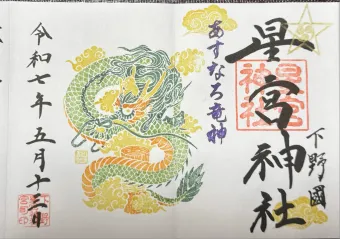 下野國
星宮神社
星宮神社
あすなろ竜神
令和七年五月十三日